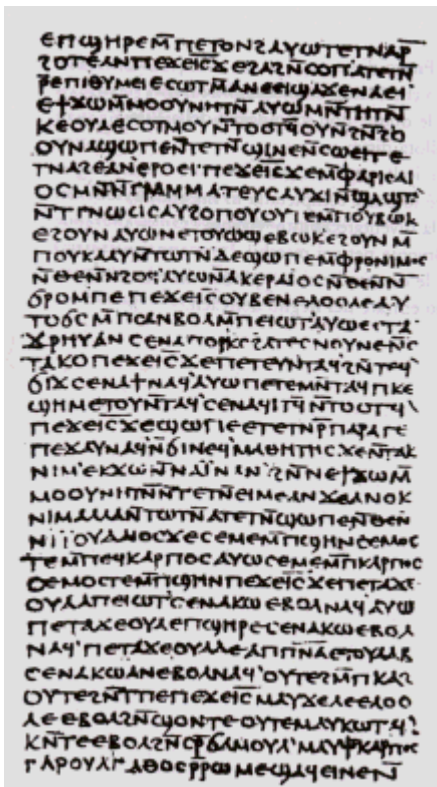 ⲉⲡϣⲏⲣⲉⲙ̄ⲡⲉⲧⲟⲛϩⲁⲩⲱⲧⲉⲧⲛⲁⲣ̄
ϩⲟⲧⲉⲁⲛⲡⲉϫⲉⲓ̅ⲥ̅ϫⲉϩⲁϩⲛ̄ⲥⲟⲡⲁⲧⲉⲧⲛ̄
ⲣ̄ⲉⲡⲓⲑⲩⲙⲉⲓⲉⲥⲱⲧⲙ̄ⲁⲛⲉⲉⲓϣⲁϫⲉⲛⲁⲉⲓ
ⲉϯϫⲱⲙ̄ⲙⲟⲟⲩⲛⲏⲧⲛ̄ⲁⲩⲱⲙⲛ̄ⲧⲏⲧⲛ̄
ⲕⲉⲟⲩⲁⲉⲥⲟⲧⲙⲟⲩⲛ̄ⲧⲟⲟⲧϥ̄ⲟⲩⲛ̄ϩⲛ̄ϩⲟ
ⲟⲩⲛⲁϣⲱⲡⲉⲛ̄ⲧⲉⲧⲛ̄ϣⲓⲛⲉⲛ̄ⲥⲱⲉⲓⲧⲉ
ⲧⲛⲁϩⲉⲁⲛⲉⲣⲟⲉⲓⲡⲉϫⲉⲓ̅ⲥ̅ϫⲉⲙ̄ⲫⲁⲣⲓⲥⲁⲓ
ⲟⲥⲙⲛ̄ⲛ̄ⲅⲣⲁⲙⲙⲁⲧⲉⲩⲥⲁⲩϫⲓⲛ̄ϣⲁϣⲧ'
ⲛ̄ⲧⲅⲛⲱⲥⲓⲥⲁⲩϩⲟⲡⲟⲩⲟⲩⲧⲉⲙ̄ⲡⲟⲩⲃⲱⲕ
ⲉϩⲟⲩⲛⲁⲩⲱⲛⲉⲧⲟⲩⲱϣⲉⲃⲱⲕⲉϩⲟⲩⲛⲙ̄
ⲡⲟⲩⲕⲁⲁⲩⲛ̄ⲧⲱⲧⲛ̄ⲇⲉϣⲱⲡⲉⲙ̄ⲫⲣⲟⲛⲓⲙⲟⲥ
ⲛ̄ⲑⲉⲛ̄ⲛϩⲟϥⲁⲩⲱⲛ̄ⲁⲕⲉⲣⲁⲓⲟⲥⲛ̄ⲑⲉⲛ̄ⲛ̄
ϭⲣⲟⲙⲡⲉⲡⲉϫⲉⲓ̅ⲥ̅ⲟⲩⲃⲉⲛⲉⲗⲟⲟⲗⲉⲁⲩ
ⲧⲟϭⲥⲙ̄ⲡⲥⲁⲛⲃⲟⲗⲙ̄ⲡⲉⲓⲱⲧⲁⲩⲱⲉⲥⲧⲁ
ϫⲣⲏⲩⲁⲛⲥⲉⲛⲁⲡⲟⲣⲕⲥ̄ϩⲁⲧⲉⲥⲛⲟⲩⲛⲉⲛ̄ⲥ
ⲧⲁⲕⲟⲡⲉϫⲉⲓ̅ⲥ̅ϫⲉⲡⲉⲧⲉⲩⲛ̄ⲧⲁϥϩⲛ̄ⲧⲉϥ
ϭⲓϫⲥⲉⲛⲁϯⲛⲁϥ'ⲁⲩⲱⲡⲉⲧⲉⲙⲛ̄ⲧⲁϥⲡⲕⲉ
ϣⲏⲙⲉⲧⲟⲩⲛ̄ⲧⲁϥ'ⲥⲉⲛⲁϥⲓⲧϥ̄ⲛ̄ⲧⲟⲟⲧϥ'
ⲡⲉϫⲉⲓ̅ⲥ̅ϫⲉϣⲱⲡⲉⲉⲧⲉⲧⲛ̄ⲣ̄ⲡⲁⲣⲁⲅⲉ
ⲡⲉϫⲁⲩⲛⲁϥ'ⲛ̄ϭⲓⲛⲉϥ'ⲙⲁⲑⲏⲧⲏⲥϫⲉⲛ̄ⲧⲁⲕ
ⲛⲓⲙ'ⲉⲕϫⲱⲛ̄ⲛⲁⲓ̈ⲛⲁⲛ'ϩⲛ̄ⲛⲉϯϫⲱⲙ̄
ⲙⲟⲟⲩⲛⲏⲧⲛ̄ⲛ̄ⲧⲉⲧⲛ̄ⲉⲓⲙⲉⲁⲛϫⲉⲁⲛⲟⲕ
ⲛⲓⲙⲁⲗⲗⲁⲛ̄ⲧⲱⲧⲛ̄ⲁⲧⲉⲧⲛ̄ϣⲱⲡⲉⲛ̄ⲑⲉⲛ̄
ⲛⲓⲓ̈ⲟⲩⲇⲁⲓⲟⲥϫⲉⲥⲉⲙⲉⲙ̄ⲡϣⲏⲛⲥⲉⲙⲟⲥ
ⲧⲉⲙ̄ⲡⲉϥⲕⲁⲣⲡⲟⲥⲁⲩⲱⲥⲉⲙⲉⲙ̄ⲡⲕⲁⲣⲡⲟⲥ
ⲥⲉⲙⲟⲥⲧⲉⲙ̄ⲡϣⲏⲛⲡⲉϫⲉⲓ̅ⲥ̅ϫⲉⲡⲉⲧⲁϫⲉ
ⲟⲩⲁⲁⲡⲉⲓⲱⲧ'ⲥⲉⲛⲁⲕⲱⲉⲃⲟⲗⲛⲁϥ'ⲁⲩⲱ
ⲡⲉⲧⲁϫⲉⲟⲩⲁⲉⲡϣⲏⲣⲉⲥⲉⲛⲁⲕⲱⲉⲃⲟⲗ
ⲛⲁϥ'ⲡⲉⲧⲁϫⲉⲟⲩⲁⲇⲉⲁⲡⲡ̅ⲛ̅ⲁ̅ⲉⲧⲟⲩⲁⲁⲃ
ⲥⲉⲛⲁⲕⲱⲁⲛⲉⲃⲟⲗⲛⲁϥ'ⲟⲩⲧⲉϩⲙ̄ⲡⲕⲁϩ
ⲟⲩⲧⲉϩⲛ̄ⲧⲡⲉⲡⲉϫⲉⲓ̅ⲥ̅ⲙⲁⲩϫⲉⲗⲉⲉⲗⲟⲟ
ⲗⲉⲉⲃⲟⲗϩⲛ̄ϣⲟⲛⲧⲉⲟⲩⲧⲉⲙⲁⲩⲕⲱⲧϥ'
ⲕⲛ̄ⲧⲉⲉⲃⲟⲗϩⲛ̄ⲥⲣ̄ϭⲁⲙⲟⲩⲗ'ⲙⲁⲩϯⲕⲁⲣⲡⲟⲥ
ⲅⲁⲣⲟⲩⲁⲅⲁⲑⲟⲥⲣ̄ⲣⲱⲙⲉϣⲁϥⲉⲓⲛⲉⲛ̄